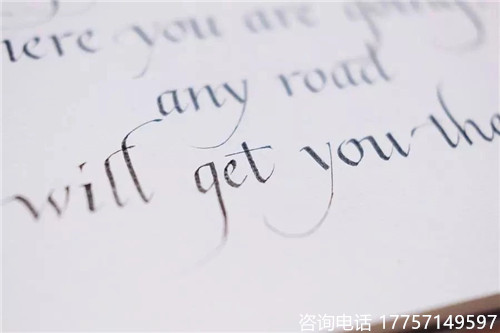 here you are going
any road
will get you the
咨询电话 17757149597